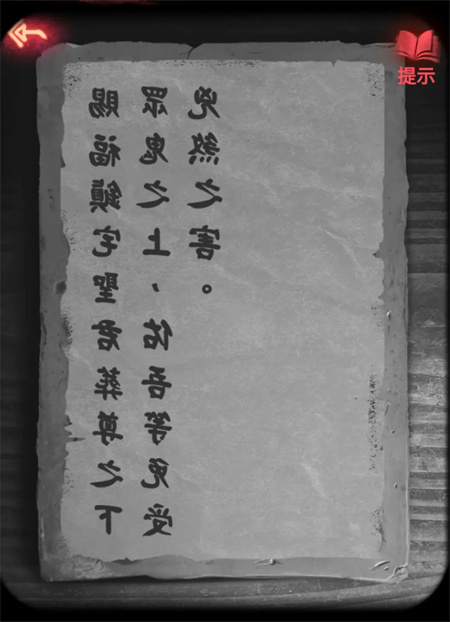 賜福鎮宅聖君葬尊之下
眾鬼之上，佑吾等免受
兇煞之害。
提示